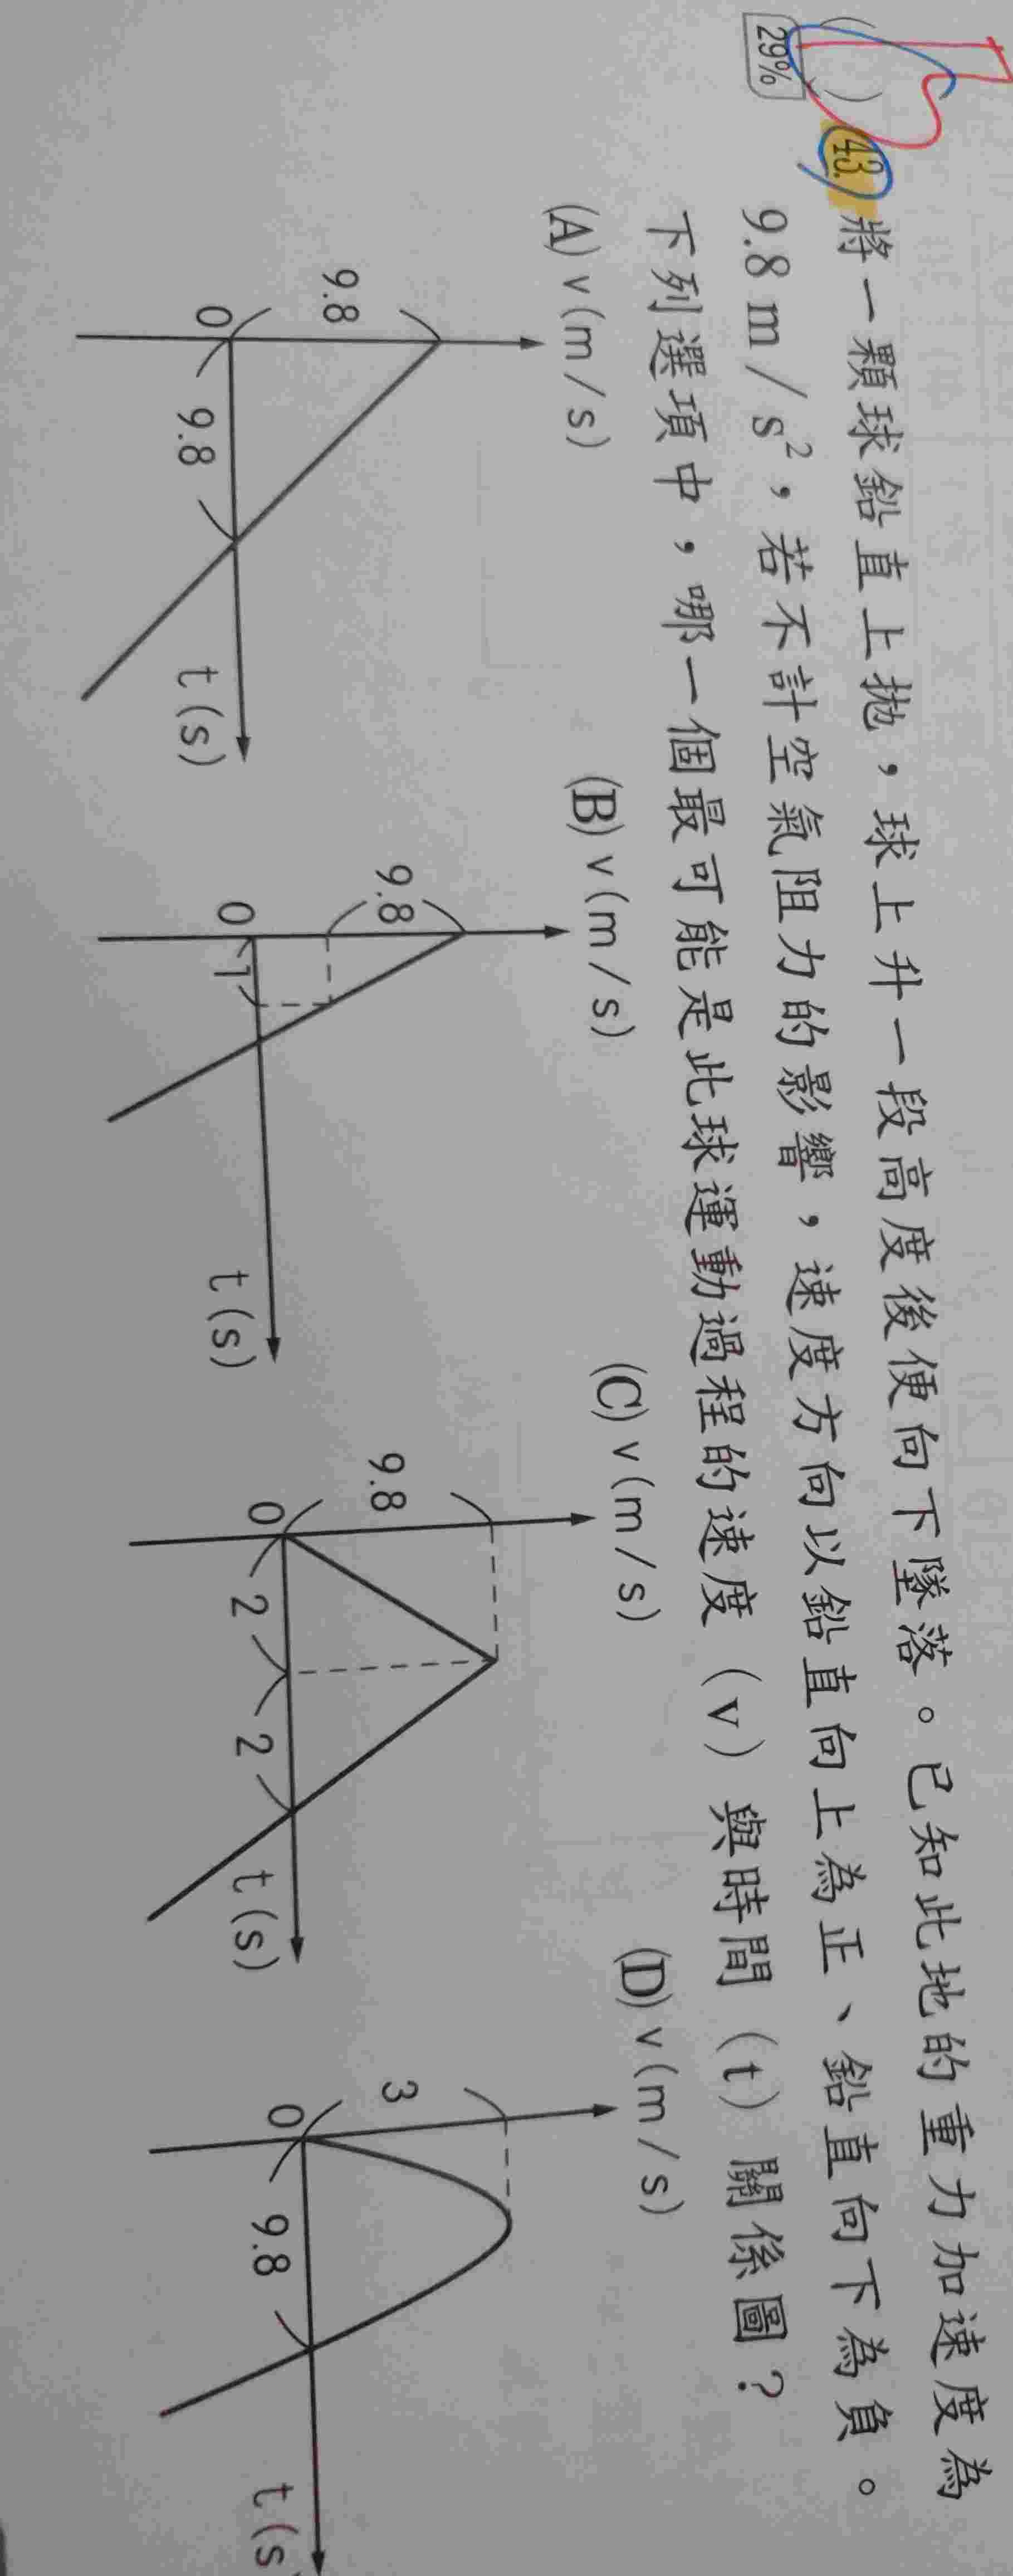 29%
( ) 43. 將一顆球鉛直上拋，球上升一段高度後便向下墜落。已知此地的重力加速度為
9.8 m／s²，若不計空氣阻力的影響，速度方向以鉛直向上為正、鉛直向下為負。
下列選項中，哪一個最可能是此球運動過程的速度（v）與時間（t）關係圖？
(A) v(m/s)
9.8
0
9.8
t(s)
(B) v(m/s)
9.8
0
1
t(s)
(C) v(m/s)
9.8
0
2
2
t(s)
(D) v(m/s)
3
0
9.8
t(s)